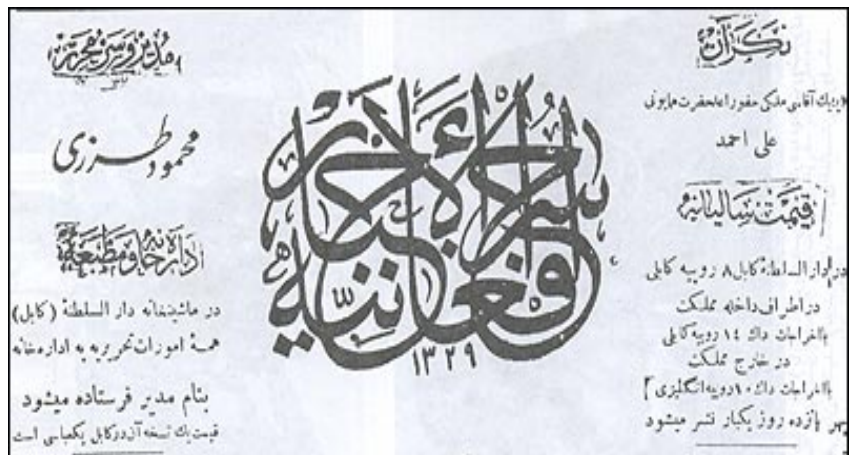 نگران
ایشیک آقاسی ملکی حضور اعلیحضرت همایونی
علی احمد
قیمت سالیانه
در دار السلطنهٔ کابل ۸ روپیه کابلی
در اطراف داخله مملکت
با اخراجات داك ۱۴ روپیهٔ کابلی
در خارج مملکت
با اخراجات داك ۱۰ روپیه انگلیزی
هر پازده روز یکبار نشر میشود
سراج الأخبار
افغانیه
۱۳۲۹
مدیر و سر محرر
محمود طرزی
اداره خانه و مطبعه
در ماشینخانه دار السلطنهٔ (کابل)
همهٔ امورات تحریریه به اداره خانه
بنام مدیر فرستاده میشود
قیمت یك نسخه آن در کابل یکعباسی است